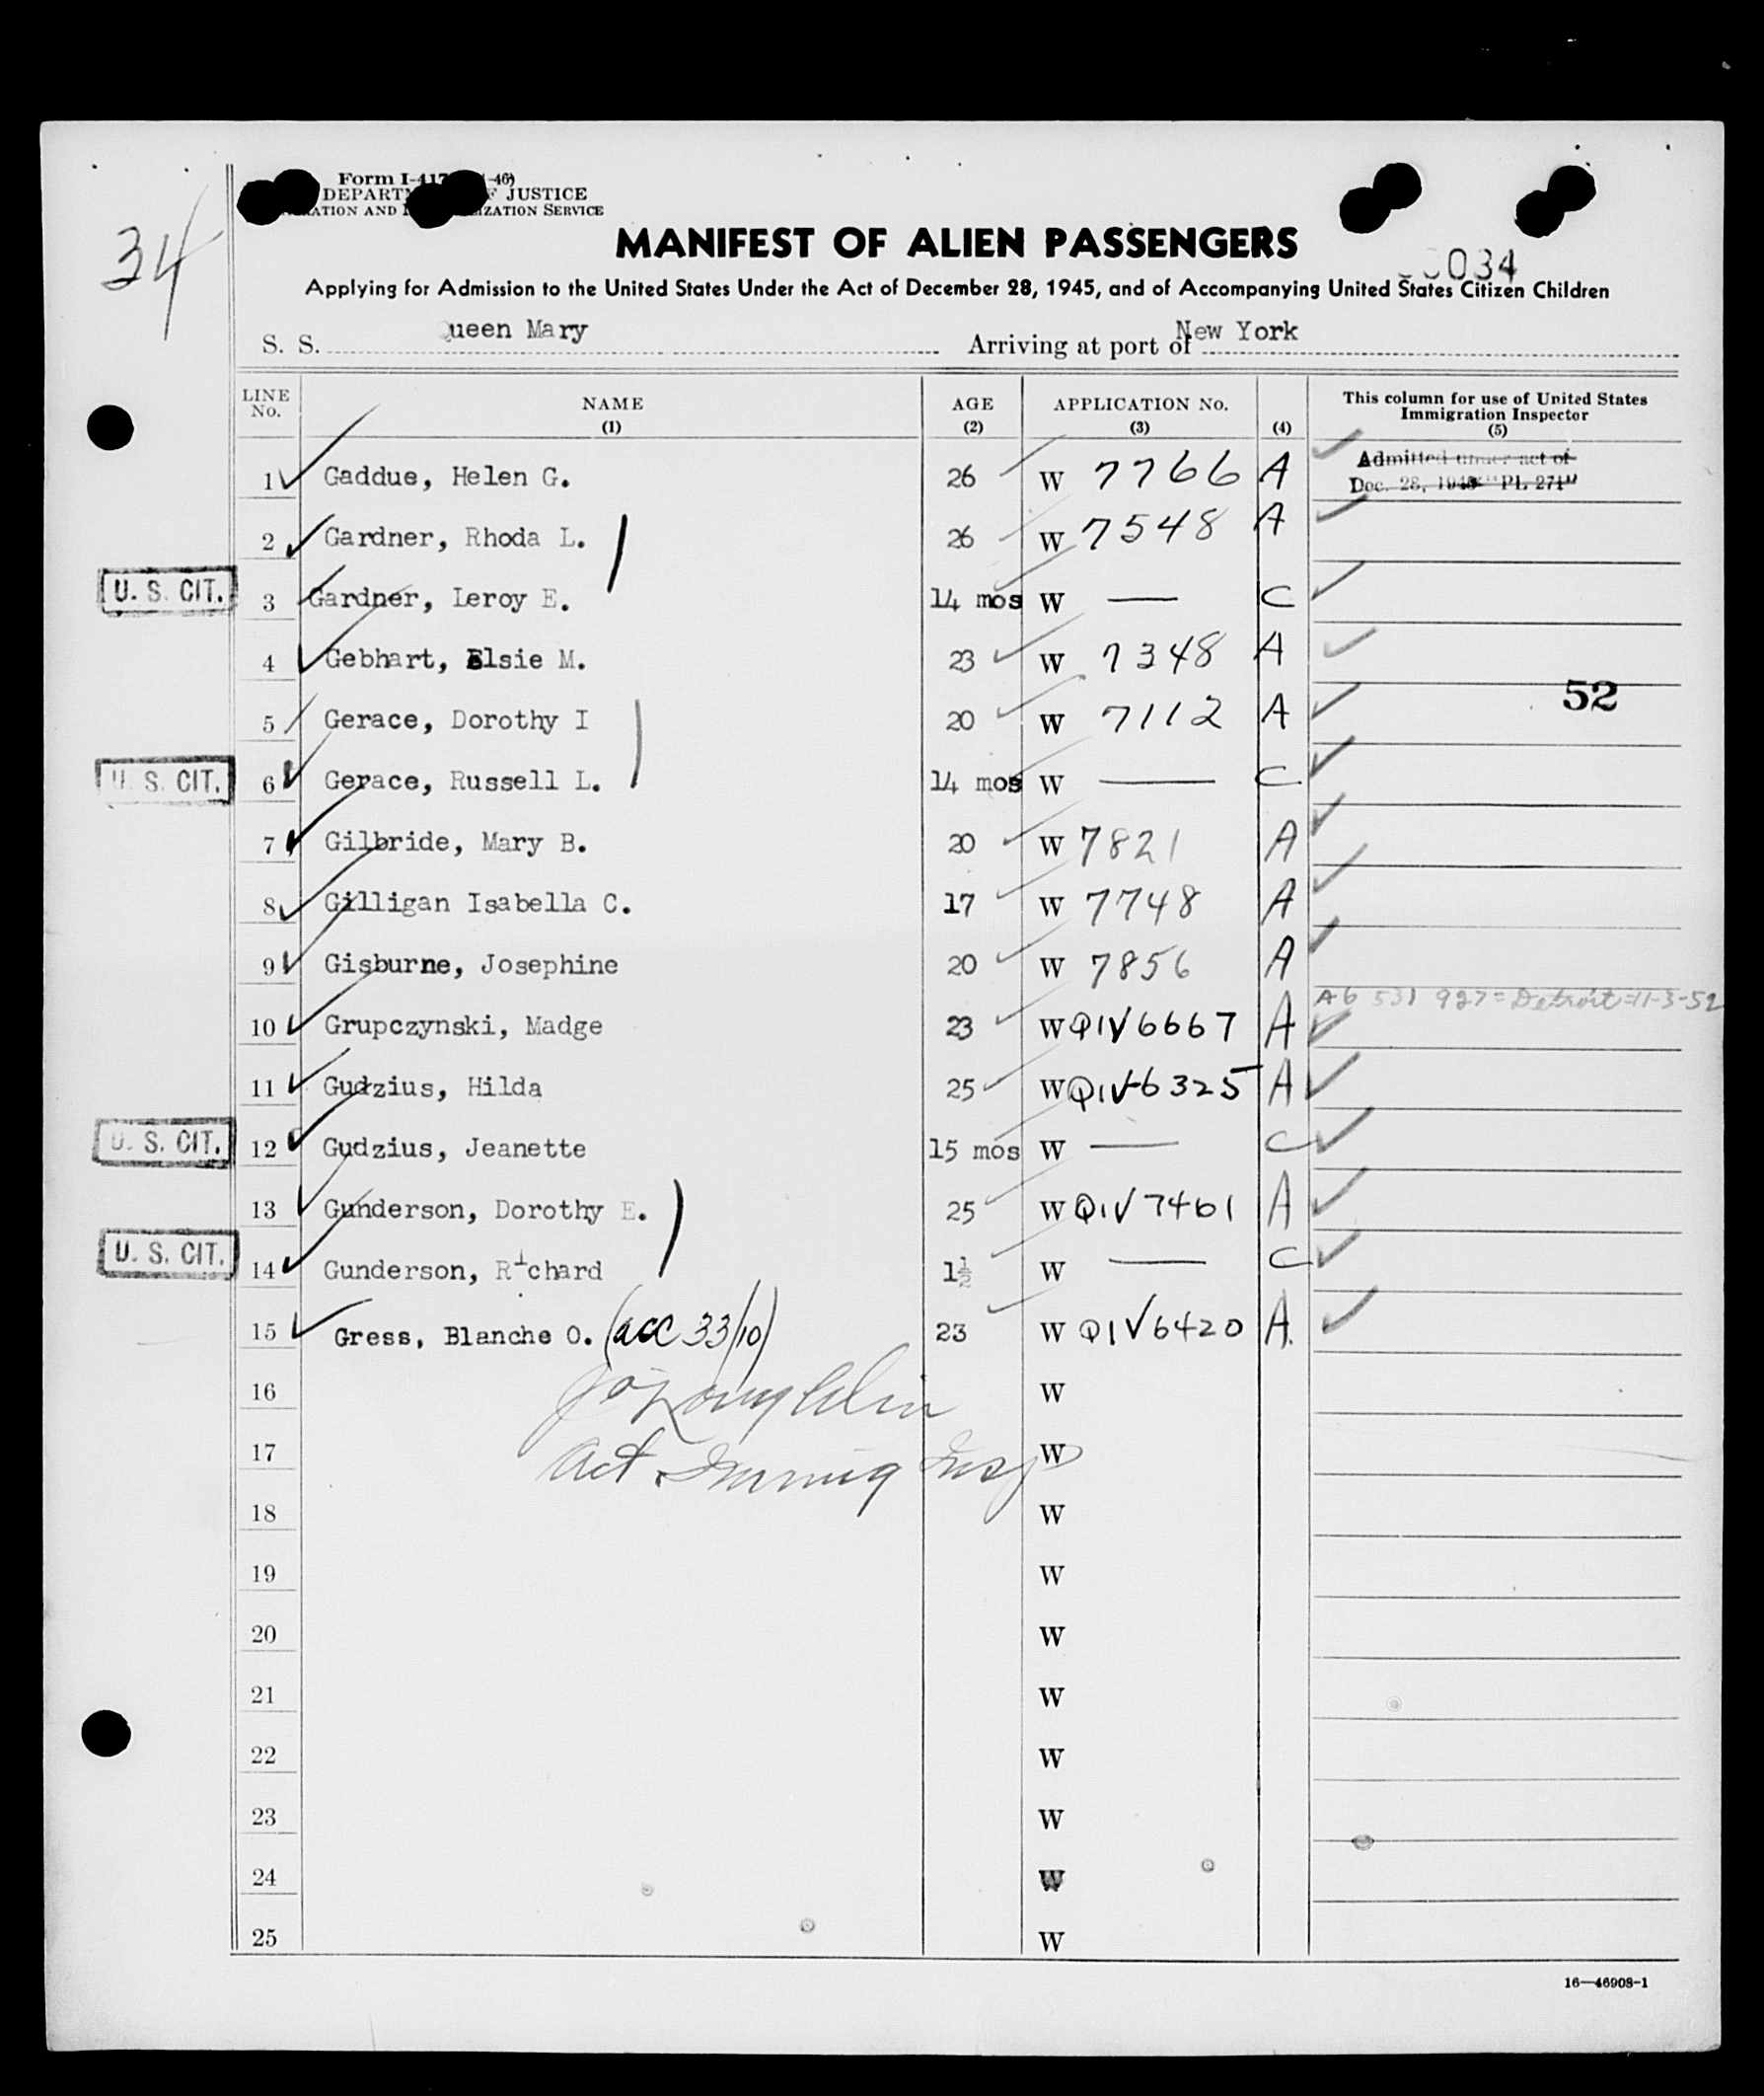 34
Form I-417 -46)
DEPART F JUSTICE
ATION AND IZATION SERVICE
MANIFEST OF ALIEN PASSENGERS
034
Applying for Admission to the United States Under the Act of December 28, 1945, and of Accompanying United States Citizen Children
S. S. Queen Mary Arriving at port of New York
LINE No. NAME (1) AGE (2) APPLICATION No. (3) (4) This column for use of United States Immigration Inspector (5)
Admitted under act of
Dec. 28, 1945 "PL 271"
1 Gaddue, Helen G. 26 W 7766 A
2 Gardner, Rhoda L. 26 W 7548 A
U. S. CIT. 3 Gardner, Leroy E. 14 mos W — C
4 Gebhart, Elsie M. 23 W 7348 A
52
5 Gerace, Dorothy I 20 W 7112 A
U. S. CIT. 6 Gerace, Russell L. 14 mos W — C
7 Gilbride, Mary B. 20 W 7821 A
8 Gilligan Isabella C. 17 W 7748 A
9 Gisburne, Josephine 20 W 7856 A
A6 531 927=Detroit=11-3-52
10 Grupczynski, Madge 23 W QIV6667 A
11 Gudzius, Hilda 25 W QIV-6325 A
U. S. CIT. 12 Gudzius, Jeanette 15 mos W — C
13 Gunderson, Dorothy E. 25 W QIV 7461 A
U. S. CIT. 14 Gunderson, Richard 1½ W — C
15 Gress, Blanche O. (acc 33/10) 23 W QIV6420 A.
16 W
17 Act. Immig Insp W
18 W
19 W
20 W
21 W
22 W
23 W
24 W
25 W
16—46908-1